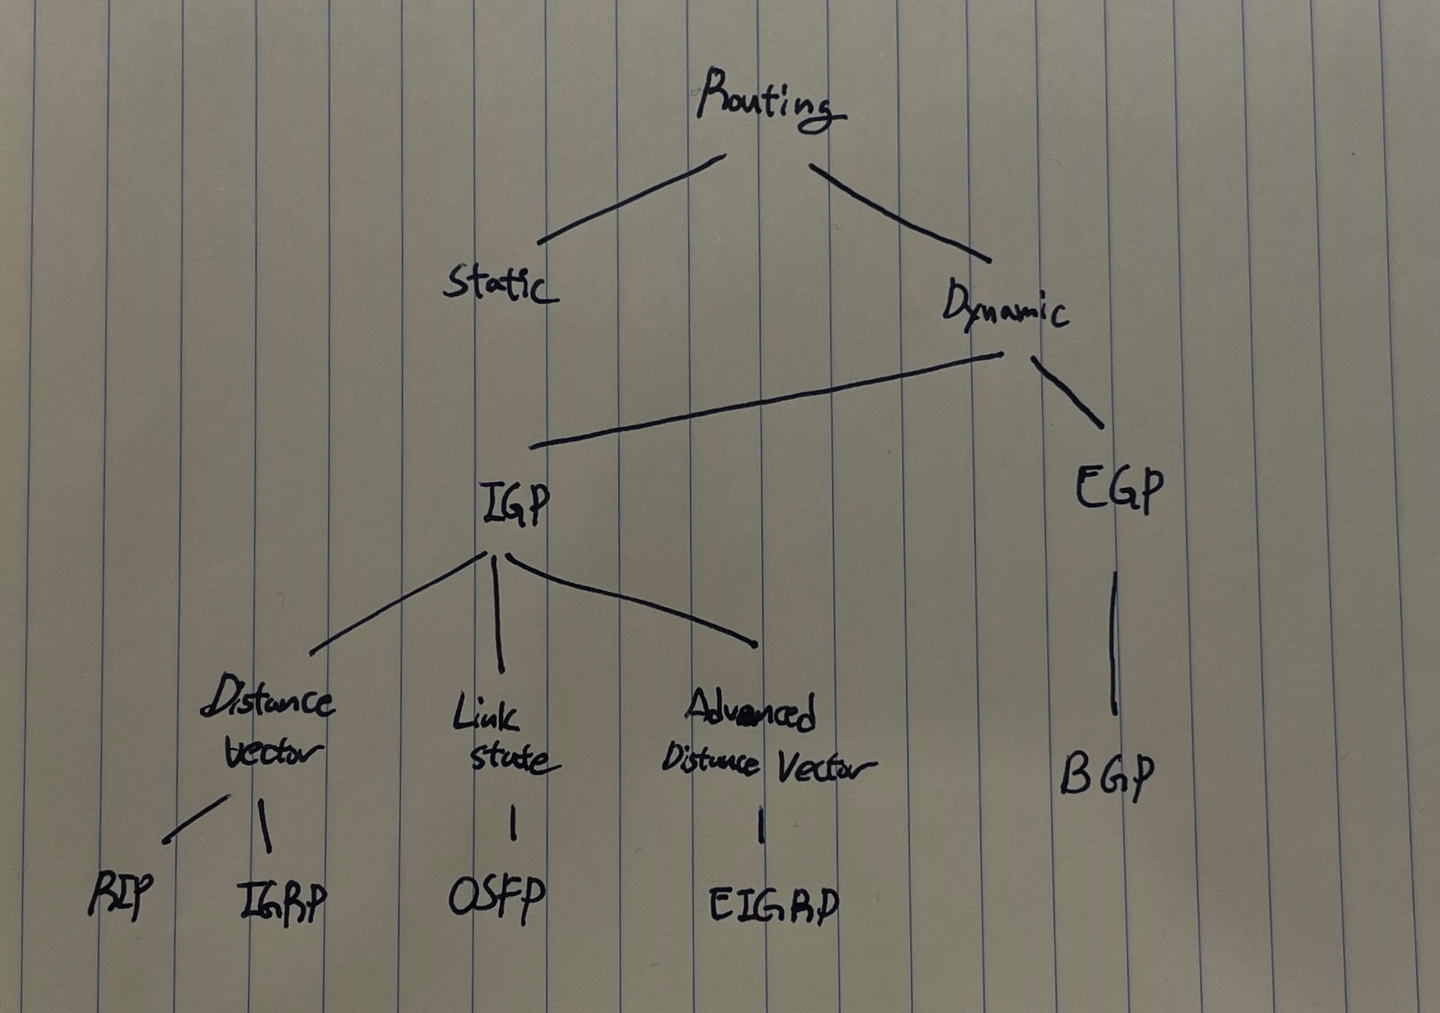 Routing
Static
Dynamic
IGP
EGP
Distance
vector
Link
state
Advanced
Distance Vector
BGP
RIP
IGRP
OSFP
EIGRP